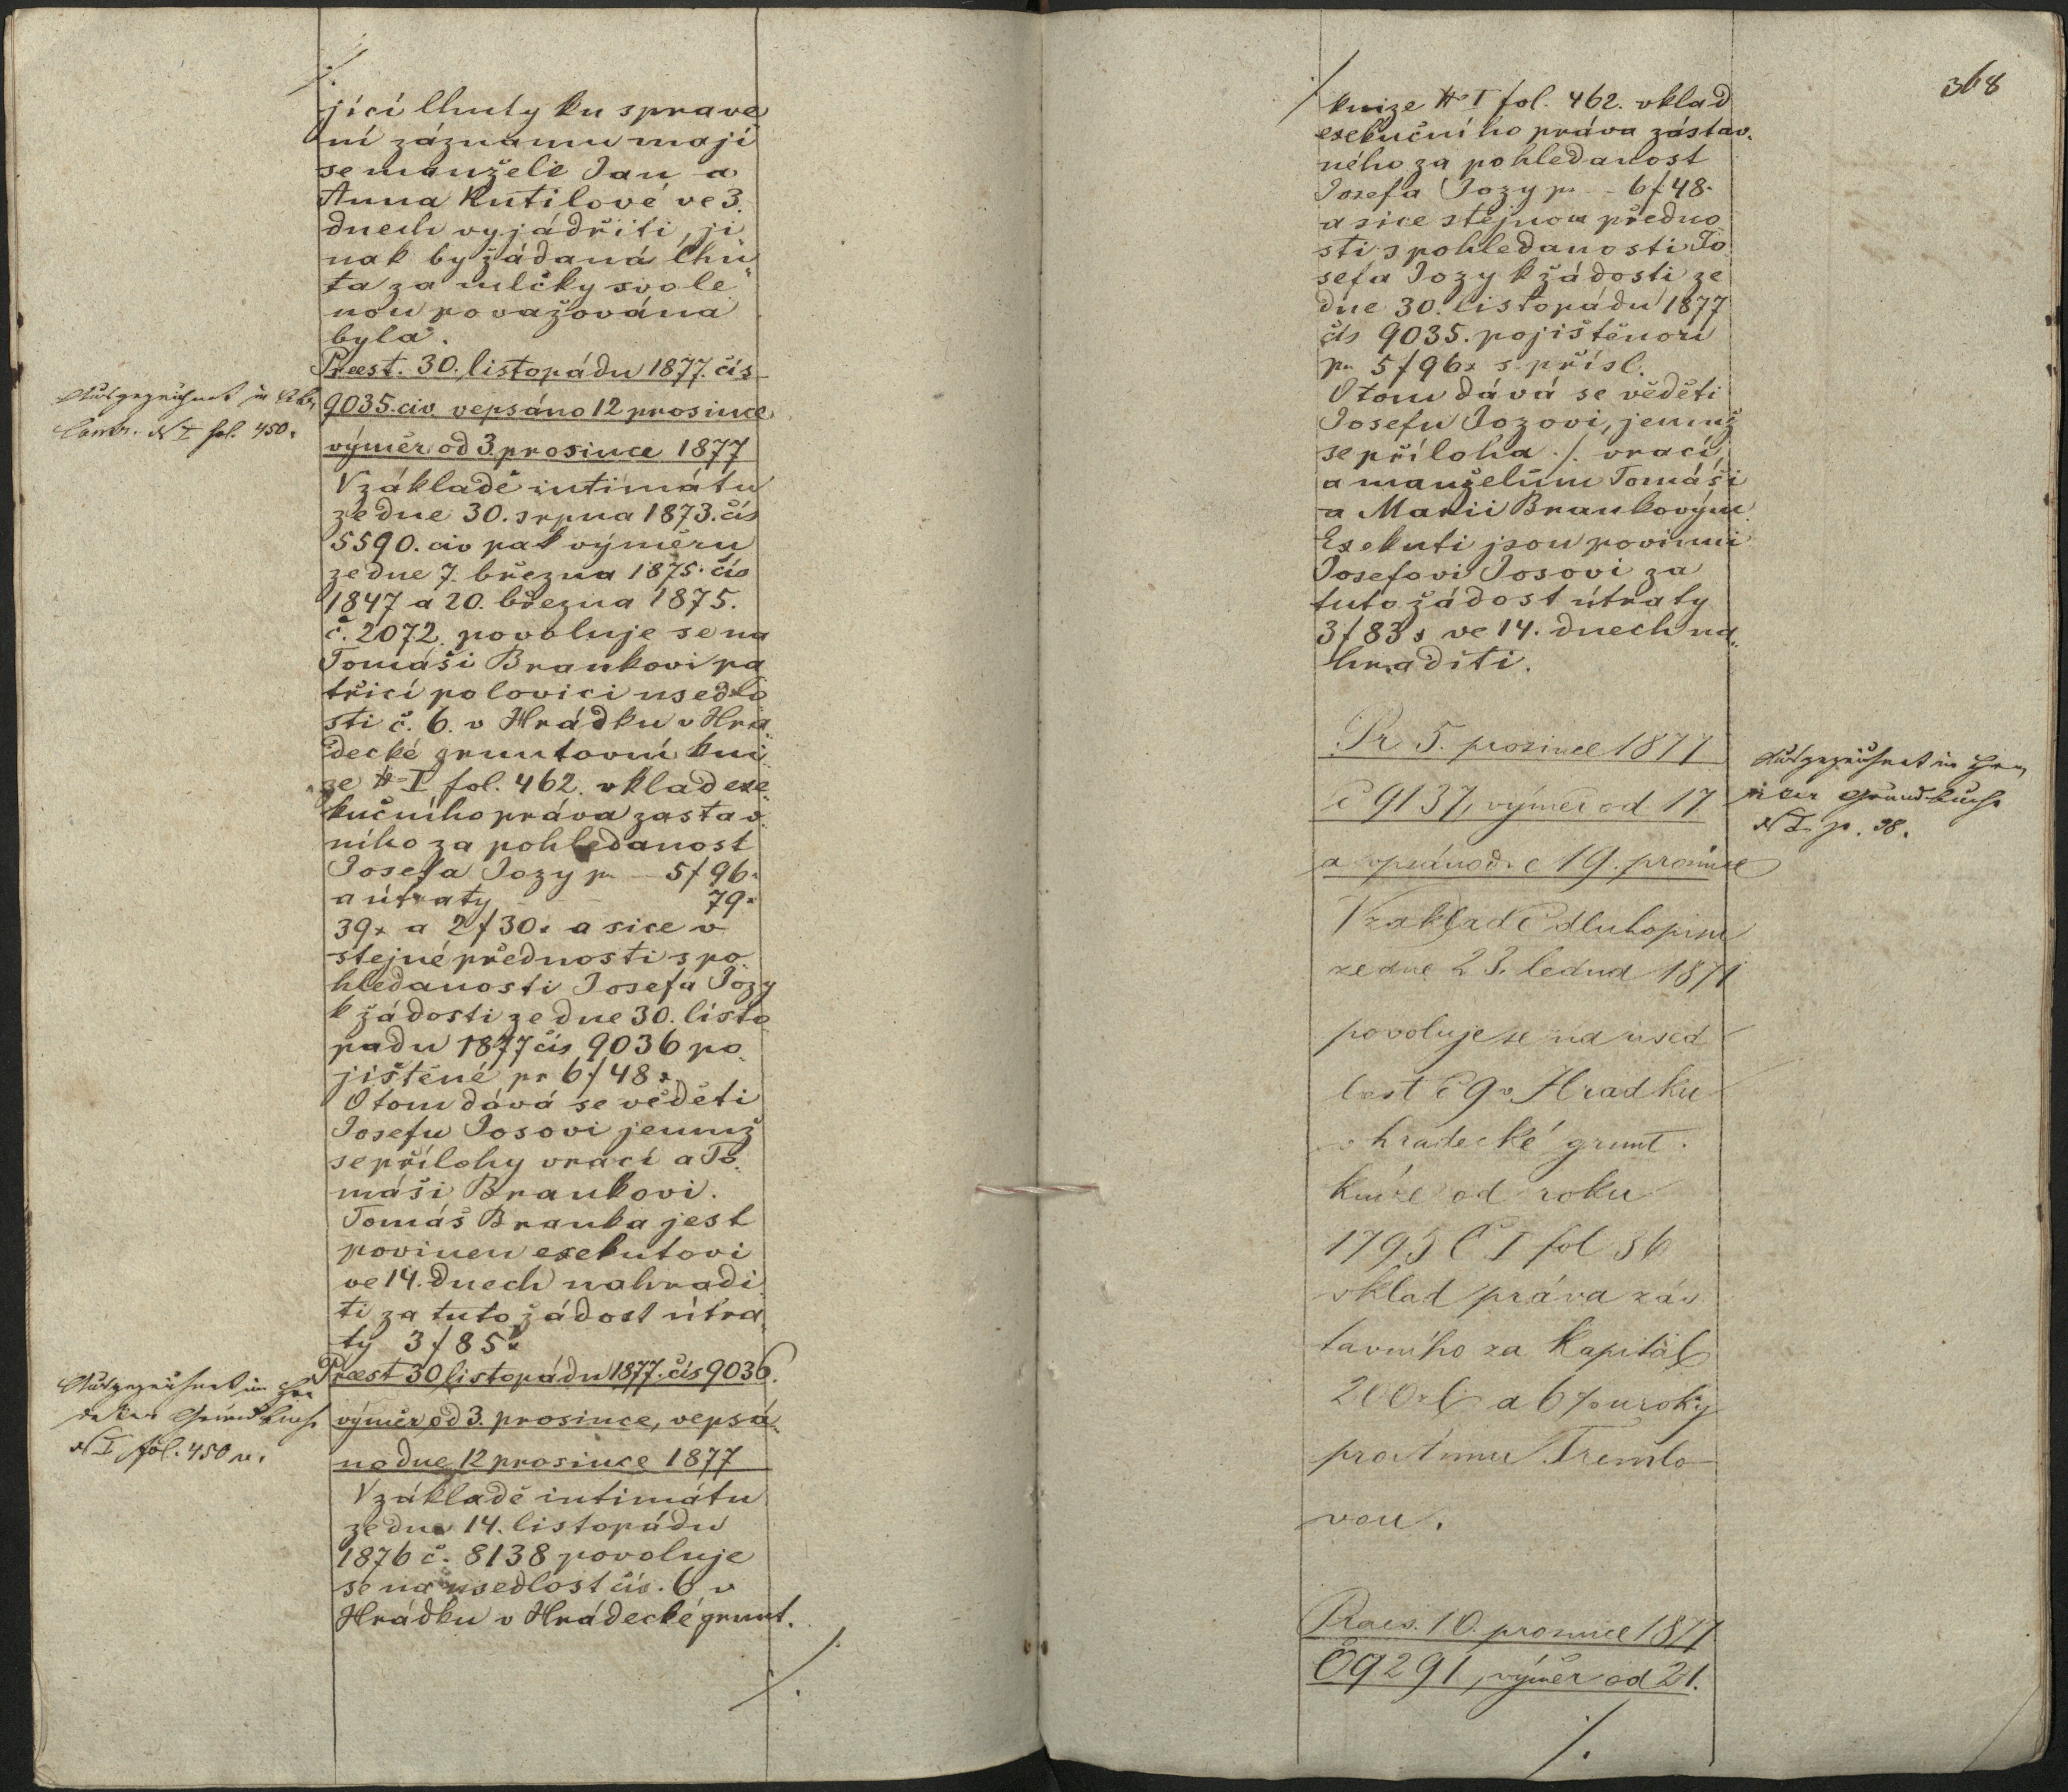 ./.
jící lhuty ku sprave
ní záznamu mají
se manželé Jan a
Anna Kutilové ve 3.
dnech vyjádřiti, ji
nak by žádaná lhů
ta za mlčky svole
nou považována
byla.
Preest. 30. listopádu 1877. čís
9035. civ. vepsáno 12 prosince
výměr od 3. prosince 1877
V základě intimátu
ze dne 30. srpna 1873. čís
5590. civ pak výměru
ze dne 7. března 1875. čís
1847 a 20. března 1875.
č. 2072. povoluje se na
Tomáši Brankovi pa
třící polovici usedlo
sti č. 6. v Hrádku v Hra
decké gruntovní kni
ze № I fol. 462. vklad exe
kučního práva zastav
ního za pohledanost
Josefa Jozy pr 5 f 96 x
a útraty 79 x
39 x a 2 f 30 x a sice v
stejné přednosti s po
hledanosti Josefa Jozy
k žádosti ze dne 30. listo
padu 1877 čís 9036 po
jištěné pr 6 f 48 x.
O tom dává se věděti
Josefu Josovi jemuž
se přílohy vrací a To
máši Brankovi.
Tomáš Branka jest
povinen exekutovi
ve 14. dnech nahradi
ti za tuto žádost útra
ty 3 f 85 x
Preest 30 listopádu 1877. čís 9036.
výměr od 3. prosince, vepsá
no dne 12 prosince 1877
V základě intimátu
ze dne 14. listopádu
1876 č. 8138 povoluje
se na usedlost čís. 6 v
Hrádku v Hrádecké grunt.
./.
Ausgezeichnet in
N I fol. 450.
Ausgezeichnet im Hra
decker Grundbuche
N I fol. 450 v.
368
./.
knize № I fol. 462. vklad
exekučního práva zástav.
ného za pohledanost
Josefa Jozy pr 6 f 48 x
a sice stejnou předno
sti s pohledanosti Jo
sefa Jozy k žádosti ze
dne 30. listopádu 1877
čís 9035. pojištěnou
pr 5 f 96 x s přísl.
O tom dává se věděti
Josefu Jozovi, jemuž
se příloha ./. vrací,
a manželům Tomáši
a Marii Brankovým
Exekuti jsou povinni
Josefovi Josovi za
tuto žádost útraty
3 f 83 x ve 14. dnech na
hraditi.
Pr 5. prosince 1877
Č 9137, výměr od 17
a vpsáno d. 19. prosince
V základě dluhopisu
ze dne 23. ledna 1871
povoluje se na used
lost č 9 v Hradku
v hradecké grunt.
knize od roku
1795 Č I fol 36
vklad práva zás
tavního za kapitál
200 zl a 6 % uroky
pro Annu Tremlo
vou.
Praes. 10. prosince 1877
Č 9291, výměr od 21.
./.
Ausgezeichnet im Hra
decker Grundbuche
N I. p. 38.